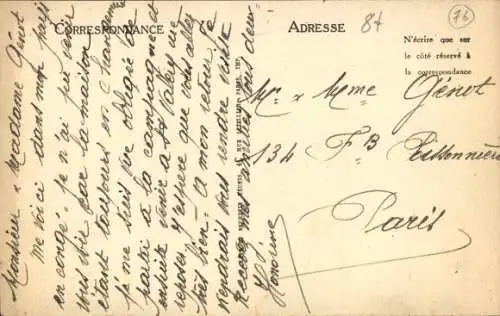 CORRESPONDANCE
ADRESSE
87
76
N'écrire que sur
le côté réservé à
la correspondance
Monsieur & Madame Génot
me voici dans mon pays
en congé. je n'ai pu venir
vous voir par la maison
étant toujours en
je me suis vue obligée de
partir à la campagne et
ensuite venir a St Valery me
reposer j'espère que vous allez
très bien. A mon retour je
viendrais vous rendre visite
Recevez mes amitiés
Honorine
Mr & Mme Génot
134 Fg Poissonnière
Paris